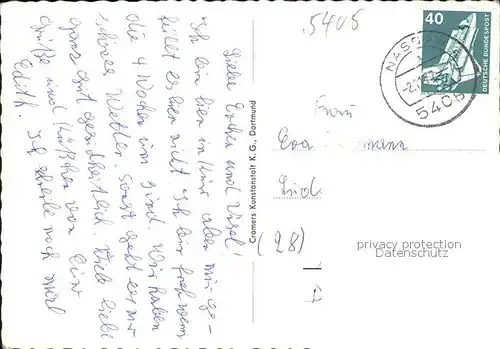 5405
Liebe Erika und Uwe!
Ich bin hier in Kur aber mir ge-
fällt es hier nicht. Ich bin froh wenn
die 4 Wochen um sind. Wir haben
schönes Wetter. Sonst geht es mir
ganz gut gesundheitlich. Viele liebe
Grüße und Küßchen von Eur
Edith. Ich schreibe noch mal
Gramers Kunstanstalt K. G., Dortmund
40
DEUTSCHE BUNDESPOST
NASSAU
5408
Frau
Eva
(28)
privacy protection
Datenschutz